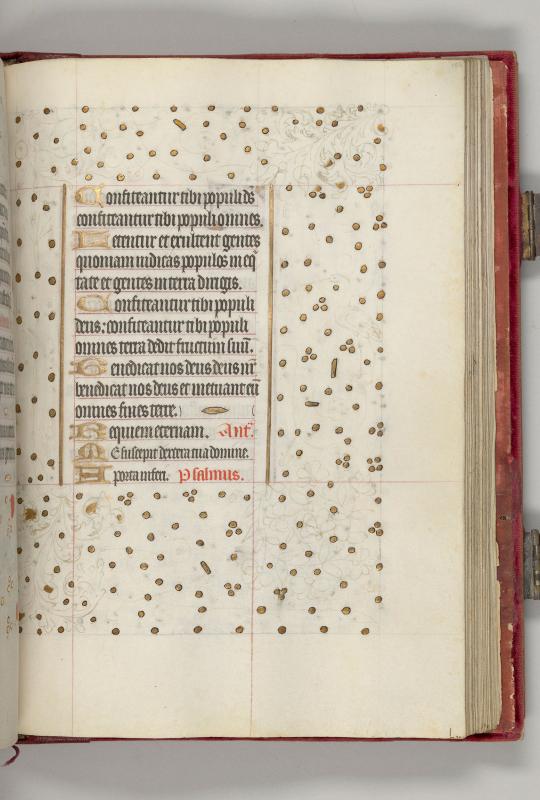 Confiteantur tibi populi ds̄
confiteantur tibi populi omnes.
Letentur et exultent gentes
quoniam iudicas populos in eq̄
tate et gentes in terra dirigis.
Confiteantur tibi populi
deus: confiteantur tibi populi
omnes terra dedit fructum suū.
Benedicat nos deus deus nr̄
benedicat nos deus et metuant eū
omnes fines terre.
Requiem eternam. Ant̄.
Me suscepit dextera tua domine.
A porta inferi. Psalmus.